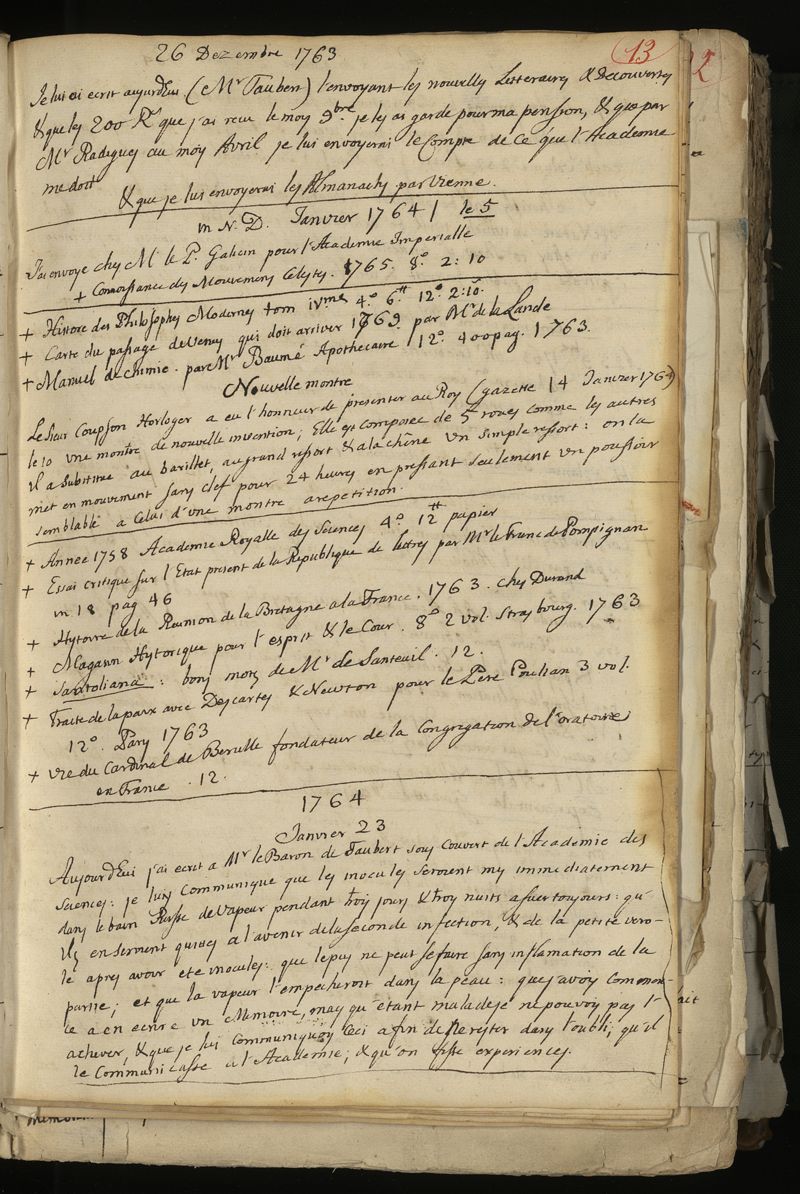 13
26 Dezembre 1763
Je lui ai ecrit aujourdhui (Mr Taubert) l'envoyant les nouvelles Litteraires & decouvertes
& que les 200 Rs que j'ai recu le moy 9bre je les ai garde pour ma pension, & que par
Mr Radigues au moy Avril je lui envoyerai le Compte de Ce que l'Academie
me doit
& que je lui envoyerai les Almanachs par Vienne.
in N. D. Janvier 1764 le 5
J'ai envoye chez M. le P. Galicin pour l'Academie Imperialle
+ Connoissance des Mouvemens Celestes. 1765. 8° 2: 10
+ Histoire des Philosophes Modernes tom ivme 4° 6tt 12° 2:10.
+ Carte du passage de Venus qui doit arriver 1769 par Mr de la Lande
+ Manuel de chimie. par Mr Baumé Apothecaire 12° 400 pag. 1763.
Nouvelle montre
Le Sieur Coupson Horloger a eu l'honneur de presenter au Roy (gazette 14 Janvier 1764)
le 10 une montre de nouvelle invention; Elle est composee de 5 roues comme les autres
il a substitue au barillet, au grand ressort & a la chêne un simple ressort: on la
met en mouvement sans clef pour 24 heures en pressant seulement un poussoir
semblable a Celui d'une montre a repetition.
+ Annee 1758 Academie Royalle des Sciences 4° 12tt papier
+ Essai critique sur l'Etat present de la Republique de lettres par Mr le Franc de Pompignan
in 18 pag 46
+ Hystoire de la Reunion de la Bretagne a la France. 1763. chez Durand
+ Magasin Hystorique pour l'esprit & le Coeur. 8° 2 vol. Strasbourg. 1763
+ Santoliana: bons mots de Mr de Santeuil. 12.
+ Traite de la paix avec Descartes & Newton pour le Pere Poulian 3 vol.
12°. Parys 1763
+ Vie du Cardinal de Berulle fondateur de la Congregation de l'oratoire
en France. 12.
1764
Janvier 23
Aujourd'hui j'ai ecrit a Mr le Baron de Taubert sous Couvert de l'Academie des
Sciences: je luy Communique que les inocules seroient mys immediatement
dans le bain Russe de vapeur pendant troy jours & troy nuits a suer toujours: qu'
ils en seroient quites a l'avenir de la seconde infection, & de la petite vero-
le apres avoir ete inocules: que le puy ne peut se faire sans inflamation de la
partie; et que la vapeur l'empecheroit dans la peau: que j'avois commen-
ce a en ecrire un Memoire, mays qu'etant malade je ne pouvoy pas l'
achever, & que je lui Communiquoy Ceci afin de ne rester dans l'oubli, qu'il
le Communicasse a l'Academie; & qu'on fisse experiences.